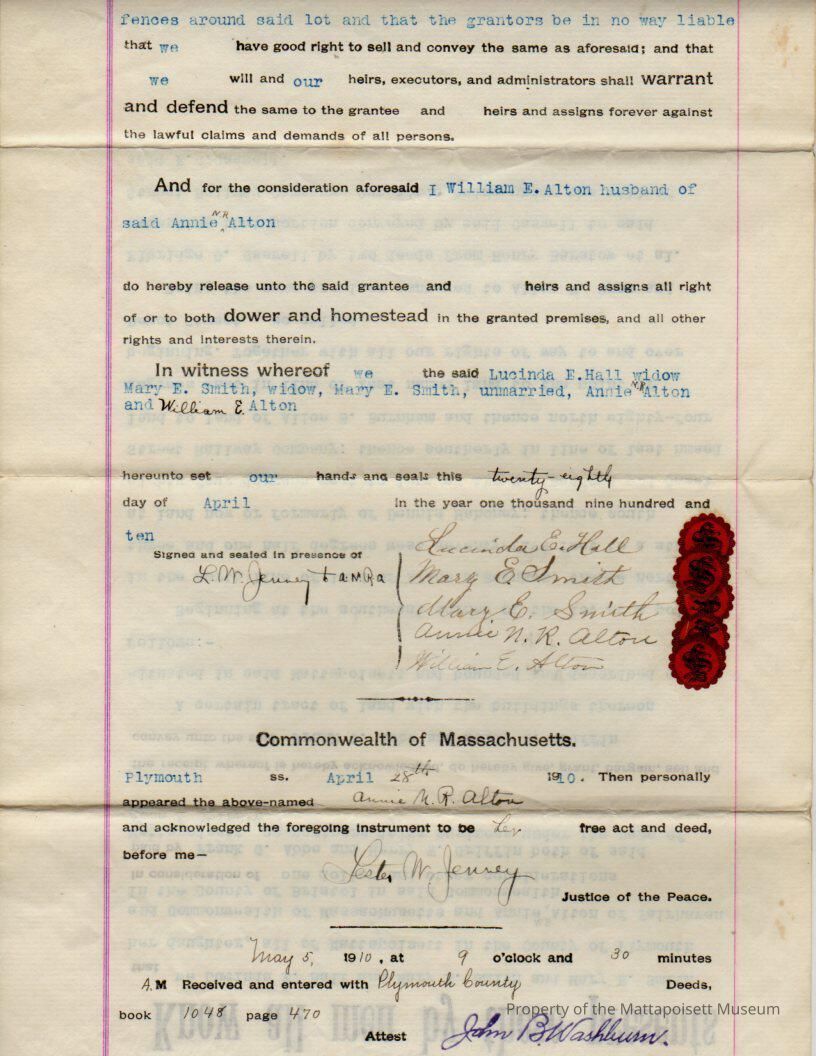 fences around said lot and that the grantors be in no way liable
that we have good right to sell and convey the same as aforesaid; and that
we will and our heirs, executors, and administrators shall warrant
and defend the same to the grantee and heirs and assigns forever against
the lawful claims and demands of all persons.
And for the consideration aforesaid I William E. Alton husband of
said Annie N.R. Alton
do hereby release unto the said grantee and heirs and assigns all right
of or to both dower and homestead in the granted premises, and all other
rights and interests therein.
In witness whereof we the said Lucinda E.Hall widow
Mary E. Smith, widow, Mary E. Smith, unmarried, Annie N.R. Alton
and William E. Alton
hereunto set our hands and seals this twenty-eightly
day of April in the year one thousand nine hundred and
ten
Signed and sealed in presence of
L. W. Jenney
Lucinda E. Hall
Mary E. Smith
Mary E. Smith
Annie N. R. Alton
William E. Alton
Commonwealth of Massachusetts.
Plymouth ss. April 28th 1910. Then personally
appeared the above-named Annie N. R. Alton
and acknowledged the foregoing instrument to be her free act and deed,
before me—
Lester W. Jenney
Justice of the Peace.
May 5, 1910, at 9 o'clock and 30 minutes
A.M Received and entered with Plymouth County Deeds,
book 1048 page 470
Attest John B. Washburn.
Property of the Mattapoisett Museum